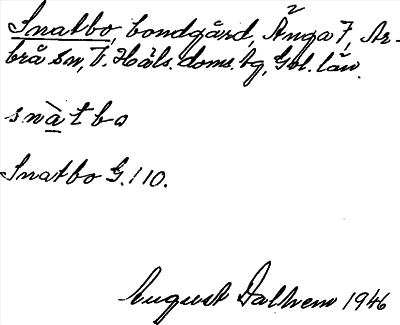 Snatbo, bondgård, Änga 7, Ar-
brå sn, V. Häls. doms. tg, Gbl. län.
snàtbo
Snatbo G. 110.
August Dalhem 1946